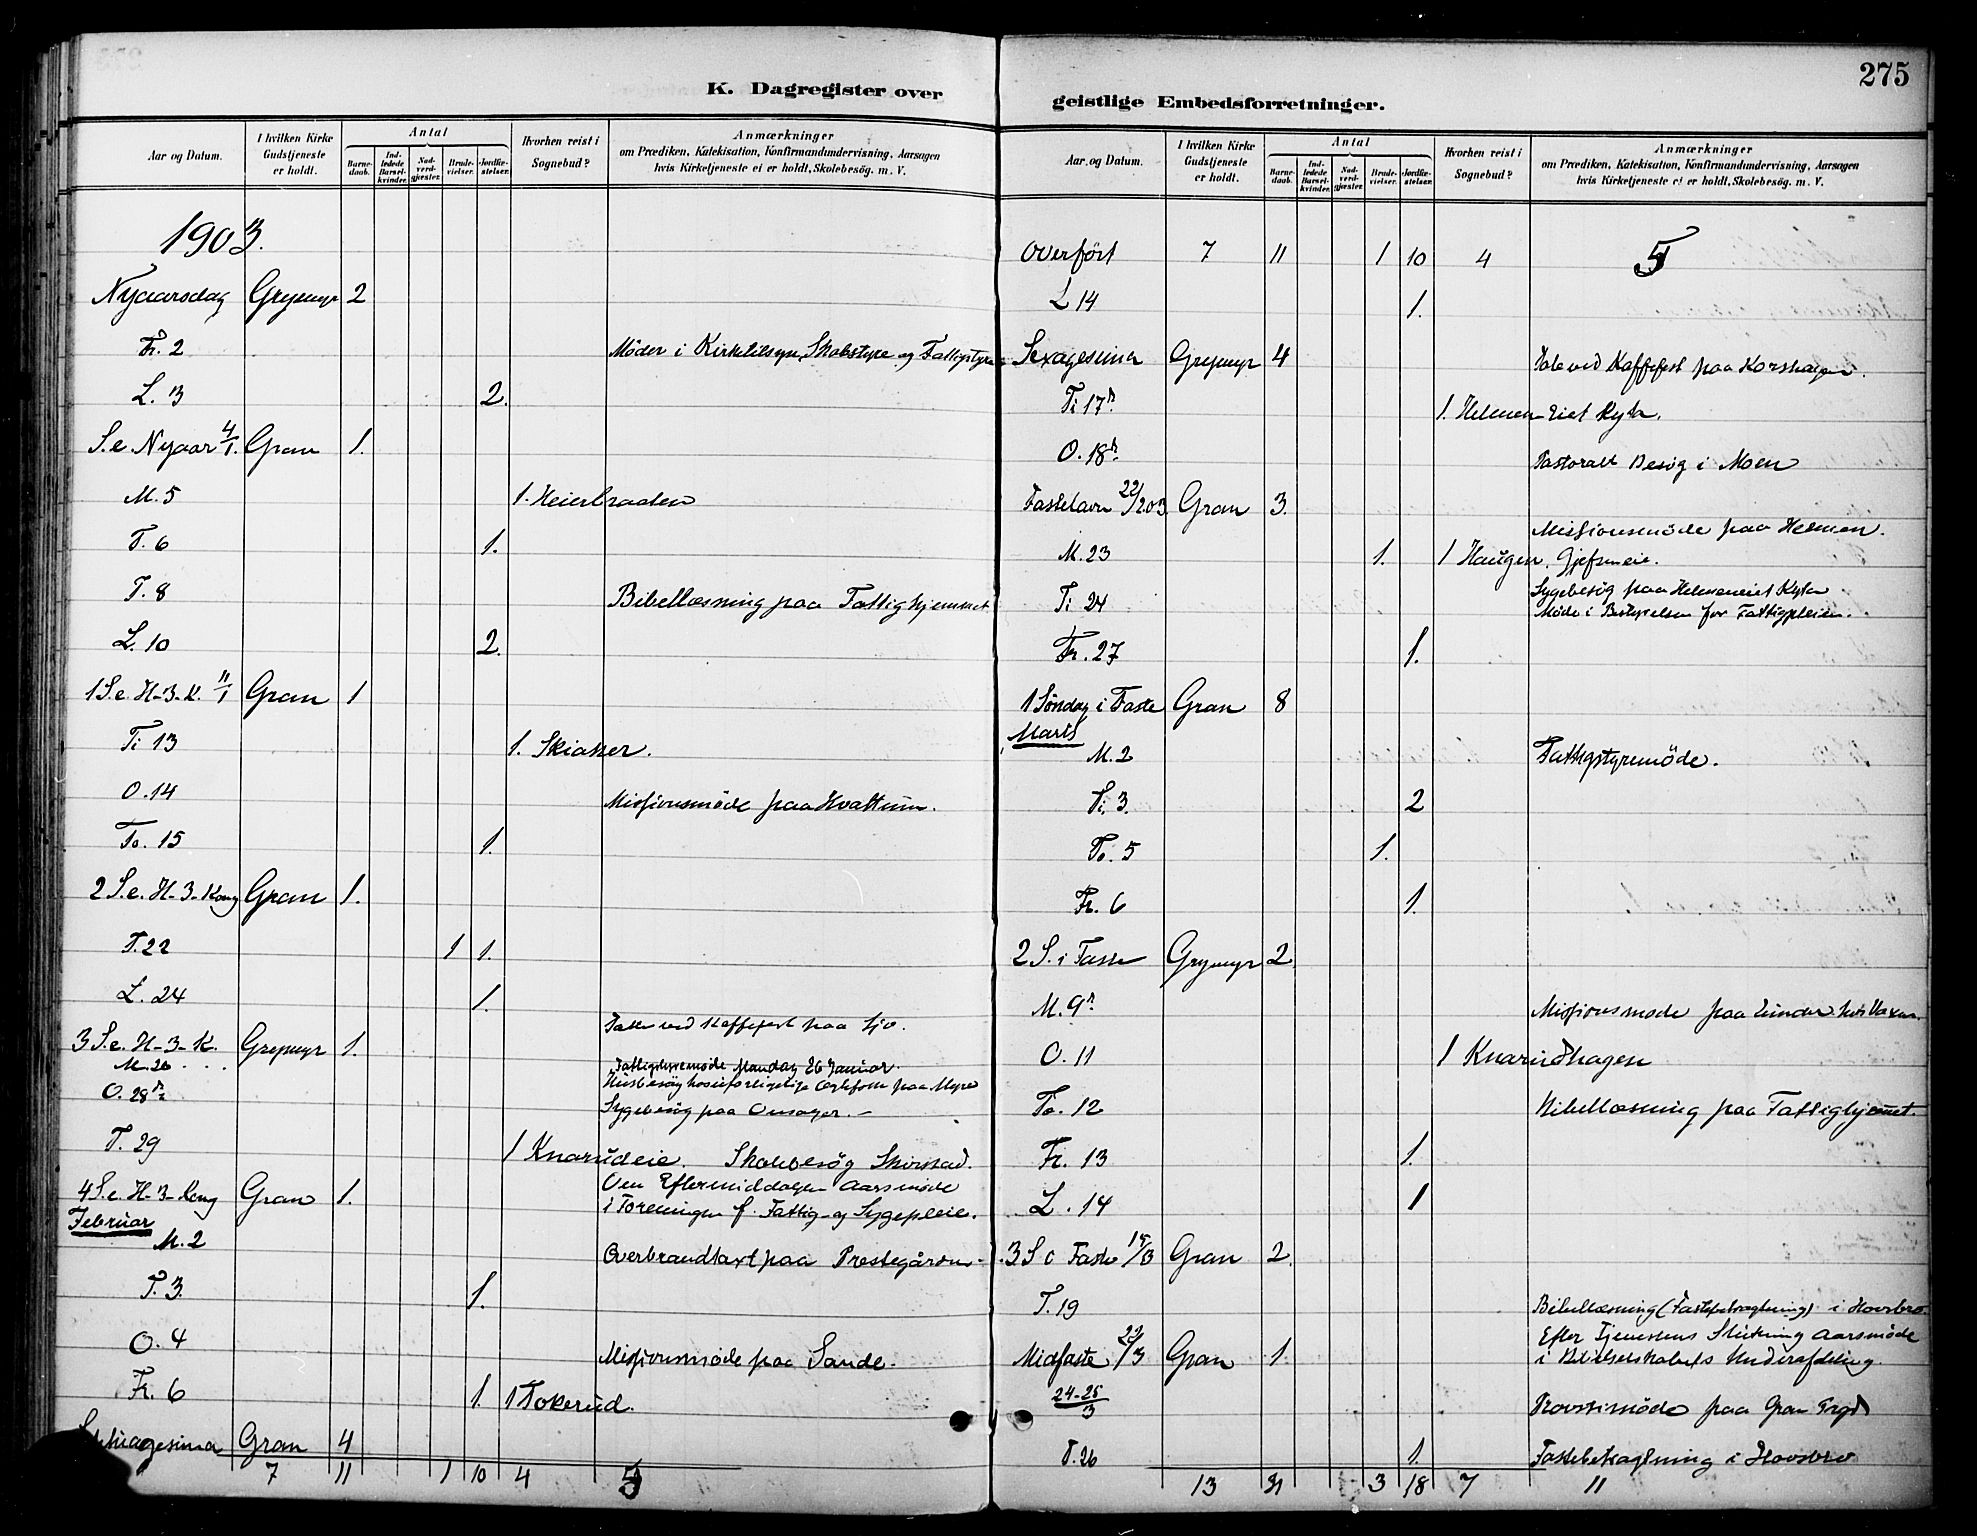 275
K. Dagregister over
geistlige Embedsforretninger.
Aar og Datum.
I hvilken Kirke Gudstjeneste er holdt.
Antal
Barnedaab.
Indledede Barselkvinder.
Nadverdgjæster.
Brudevielser.
Jordfæstelser.
Hvorhen reist i Sognebud?
Anmærkninger
om Prædiken, Katekisation, Konfirmandundervisning, Aarsagen
hvis Kirketjeneste ei er holdt, Skolebesøg. m. V.
1903.
Nyaarsdag Grymyr 2
Fr. 2 Møder i Kirketilsyn, Skolestyre og Fattigstyre
L. 3 2.
S. e. Nyaar 4/1. Gran 1.
M. 5 1. Heierbraaten
T. 6 1.
T. 8 Bibellæsning paa Fattighjemmet
L. 10 2.
1 S. e. H-3-K. 11/1 Gran 1
Ti 13 1. Skiaker.
O. 14 Missionsmøde paa Hvattum.
To. 15 1.
2 S. e. H-3-Kong Gran 1.
T. 22 1 1.
L. 24 1.
Tale ved Kaffefest paa Sjo.
3 S. e. H-3-K. Grymyr 1.
M. 26 . . . Fattigstyremøde Mandag 26 Januar.
Husbesøg paa Myre
O. 28de Sygebesøg paa Onsager. –
T. 29 1 Knarudeie. Skolebesøg Skirstad.
4 S. e. H-3-Kong Gran 1. Om Eftermiddagen Aarsmøde
i Foreningen f. Fattig- og Sygepleie.
Februar
M. 2 Overbrandtaxt paa Prestegården –
T. 3. 1.
O. 4 Missionsmøde paa Sande.
Fr. 6 1. 1 Tokerud.
Septuagesima Gran 4
7 11 1 10 4 5
Aar og Datum.
I hvilken Kirke Gudstjeneste er holdt.
Antal
Barnedaab.
Indledede Barselkvinder.
Nadverdgjæster.
Brudevielser.
Jordfæstelser.
Hvorhen reist i Sognebud?
Anmærkninger
om Prædiken, Katekisation, Konfirmandundervisning, Aarsagen
hvis Kirketjeneste ei er holdt, Skolebesøg. m. V.
Overført 7 11 1 10 4 5
L 14 1.
Sexagesima Grymyr 4 Tale ved Kaffefest paa Korshagen.
Ti 17de 1. Helmen Eiet Kyta.
O. 18de Pastoralt Besøg i Moen
Fastelavn 22/2 03 Gran 3.
Missionsmøde paa Helmen.
M. 23 1. 1 Haugen, Gjefseneie.
Sygebesøg paa Helmeneiet Kyta
Ti 24 Møde i Bestyrelsen for Fattigpleien.
Fr. 27 1.
1 Søndag i Faste Gran 8
Marts
M. 2 Fattigstyremøde.
Ti. 3. 2
To. 5 1.
Fr. 6 1.
2 S. i Faste Grymyr 2.
M. 9de Missionsmøde paa
O. 11 1 Knarudhagen
To. 12 Bibellæsning paa Fattighjemmet.
Fr. 13 1.
L. 14 1
3 S i Faste 15/3 Gran 2.
T. 19 Bibellæsning (Fastebetragtning) i Hovsbro
Efter Tjenestens Slutning Aarsmøde
Midfaste 22/3 Gran 1. i Bibelselskabets Underafdeling.
24-25/3 Provstimøde paa Gran Prgd
T. 26 1. Fastebetragtning i Hovsbro
13 31 3 18 7 11